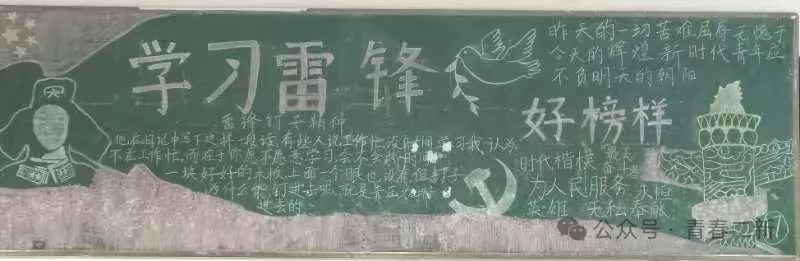 学习雷锋
好榜样
昨天的一切苦难屈辱无愧于
今天的辉煌 新时代青年应
不负明天的朝阳
雷锋钉子精神
他在日记中写下这样一段话:有些人说工作忙没时间学习我认为
不在工作忙,而在于你愿不愿意学习会不会
一块好好的木板,上面一个眼也没有但钉子
为什么能钉进去呢就是靠
进去的
时代楷模
为人民服务
永恒
英雄 无私奉献
公众号·青春二新